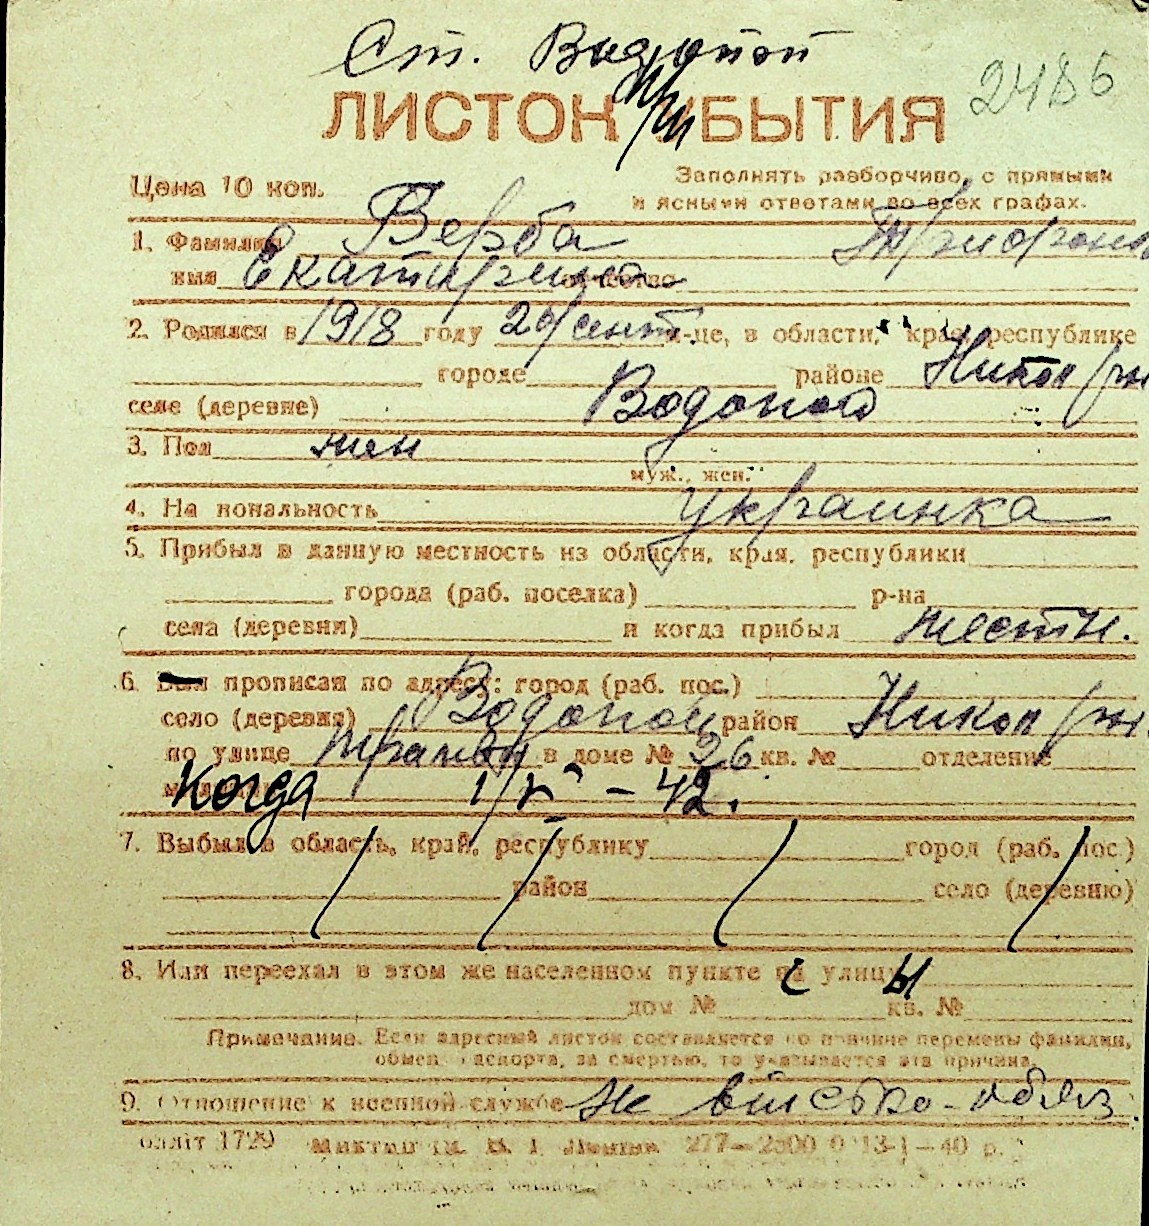 Ст. Водопой
2486
ЛИСТОК при УБЫТИЯ
Цена 10 коп.
Заполнять разборчиво, с прямыми
и ясными ответами во всех графах.
1. Фамилия Верба
имя Екатирина отчество Трифонов
2. Родился в 1918 году 20/сент. м-це, в области, крае, республике
городе районе Никоп р-н
селе (деревне) Водопой
3. Пол жен
муж., жен.
4. Национальность украинка
5. Прибыл в данную местность из области, края, республики
города (раб. поселка) р-на
села (деревни) и когда прибыл местн.
6. Был прописан по адресу: город (раб. пос.)
село (деревня) Водопой район Никоп р-н
по улице в доме № 26 кв. № отделение
Когда 1/V - 42.
7. Выбыл в область, край, республику город (раб. пос.)
район село (деревню)
8. Или переехал в этом же населенном пункте с улицы
дом № кв. №
Примечание. Если адресный листок составляется по причине перемены фамилии,
обмен паспорта, за смертью, то указывается эта причина.
9. Отношение к военной службе не військо-обяз.
обліт 1729 277—2500 0 13-1—40 р.